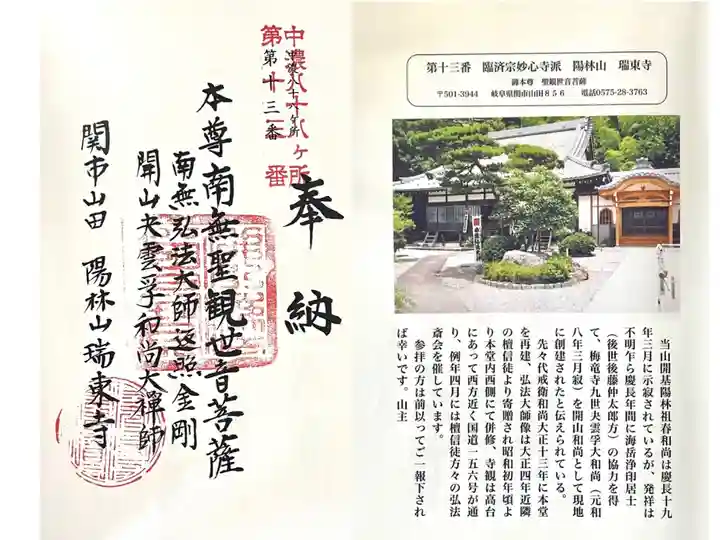 中濃八十八ヶ所
第十三番
第十三番
奉納
本尊南無聖観世音菩薩
南無弘法大師遍照金剛
開山夬雲孚和尚大禅師
関市山田 陽林山瑞東寺
第十三番 臨済宗妙心寺派 陽林山 瑞東寺
御本尊 聖観世音菩薩
〒501-3944 岐阜県関市山田856 電話0575-28-3763
当山開基陽林祖春和尚は慶長十九
年三月に示寂されているが、発祥は
不明乍ら慶長年間に海岳浄印居士
(後世後藤仲太郎方)の協力を得
て、梅竜寺九世夬雲孚大和尚(元和
八年三月寂)を開山和尚として現地
に創建されたと伝えられている。
先々代戒衛和尚大正十三年に本堂
を再建、弘法大師像は大正四年近隣
の檀信徒より寄贈され昭和初年頃よ
り本堂内西側にて併修、寺観は高台
にあって西方近く国道一五六号が通
り、例年四月には檀信徒方々の弘法
斎会を催しています。
参拝の方は前以ってご一報下され
ば幸いです。山主